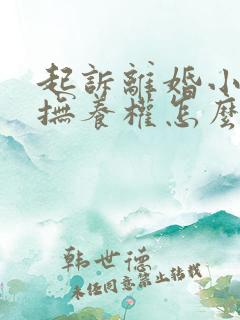 起訴離婚小
撫養權怎麼
韩世德
未经同意禁止转载